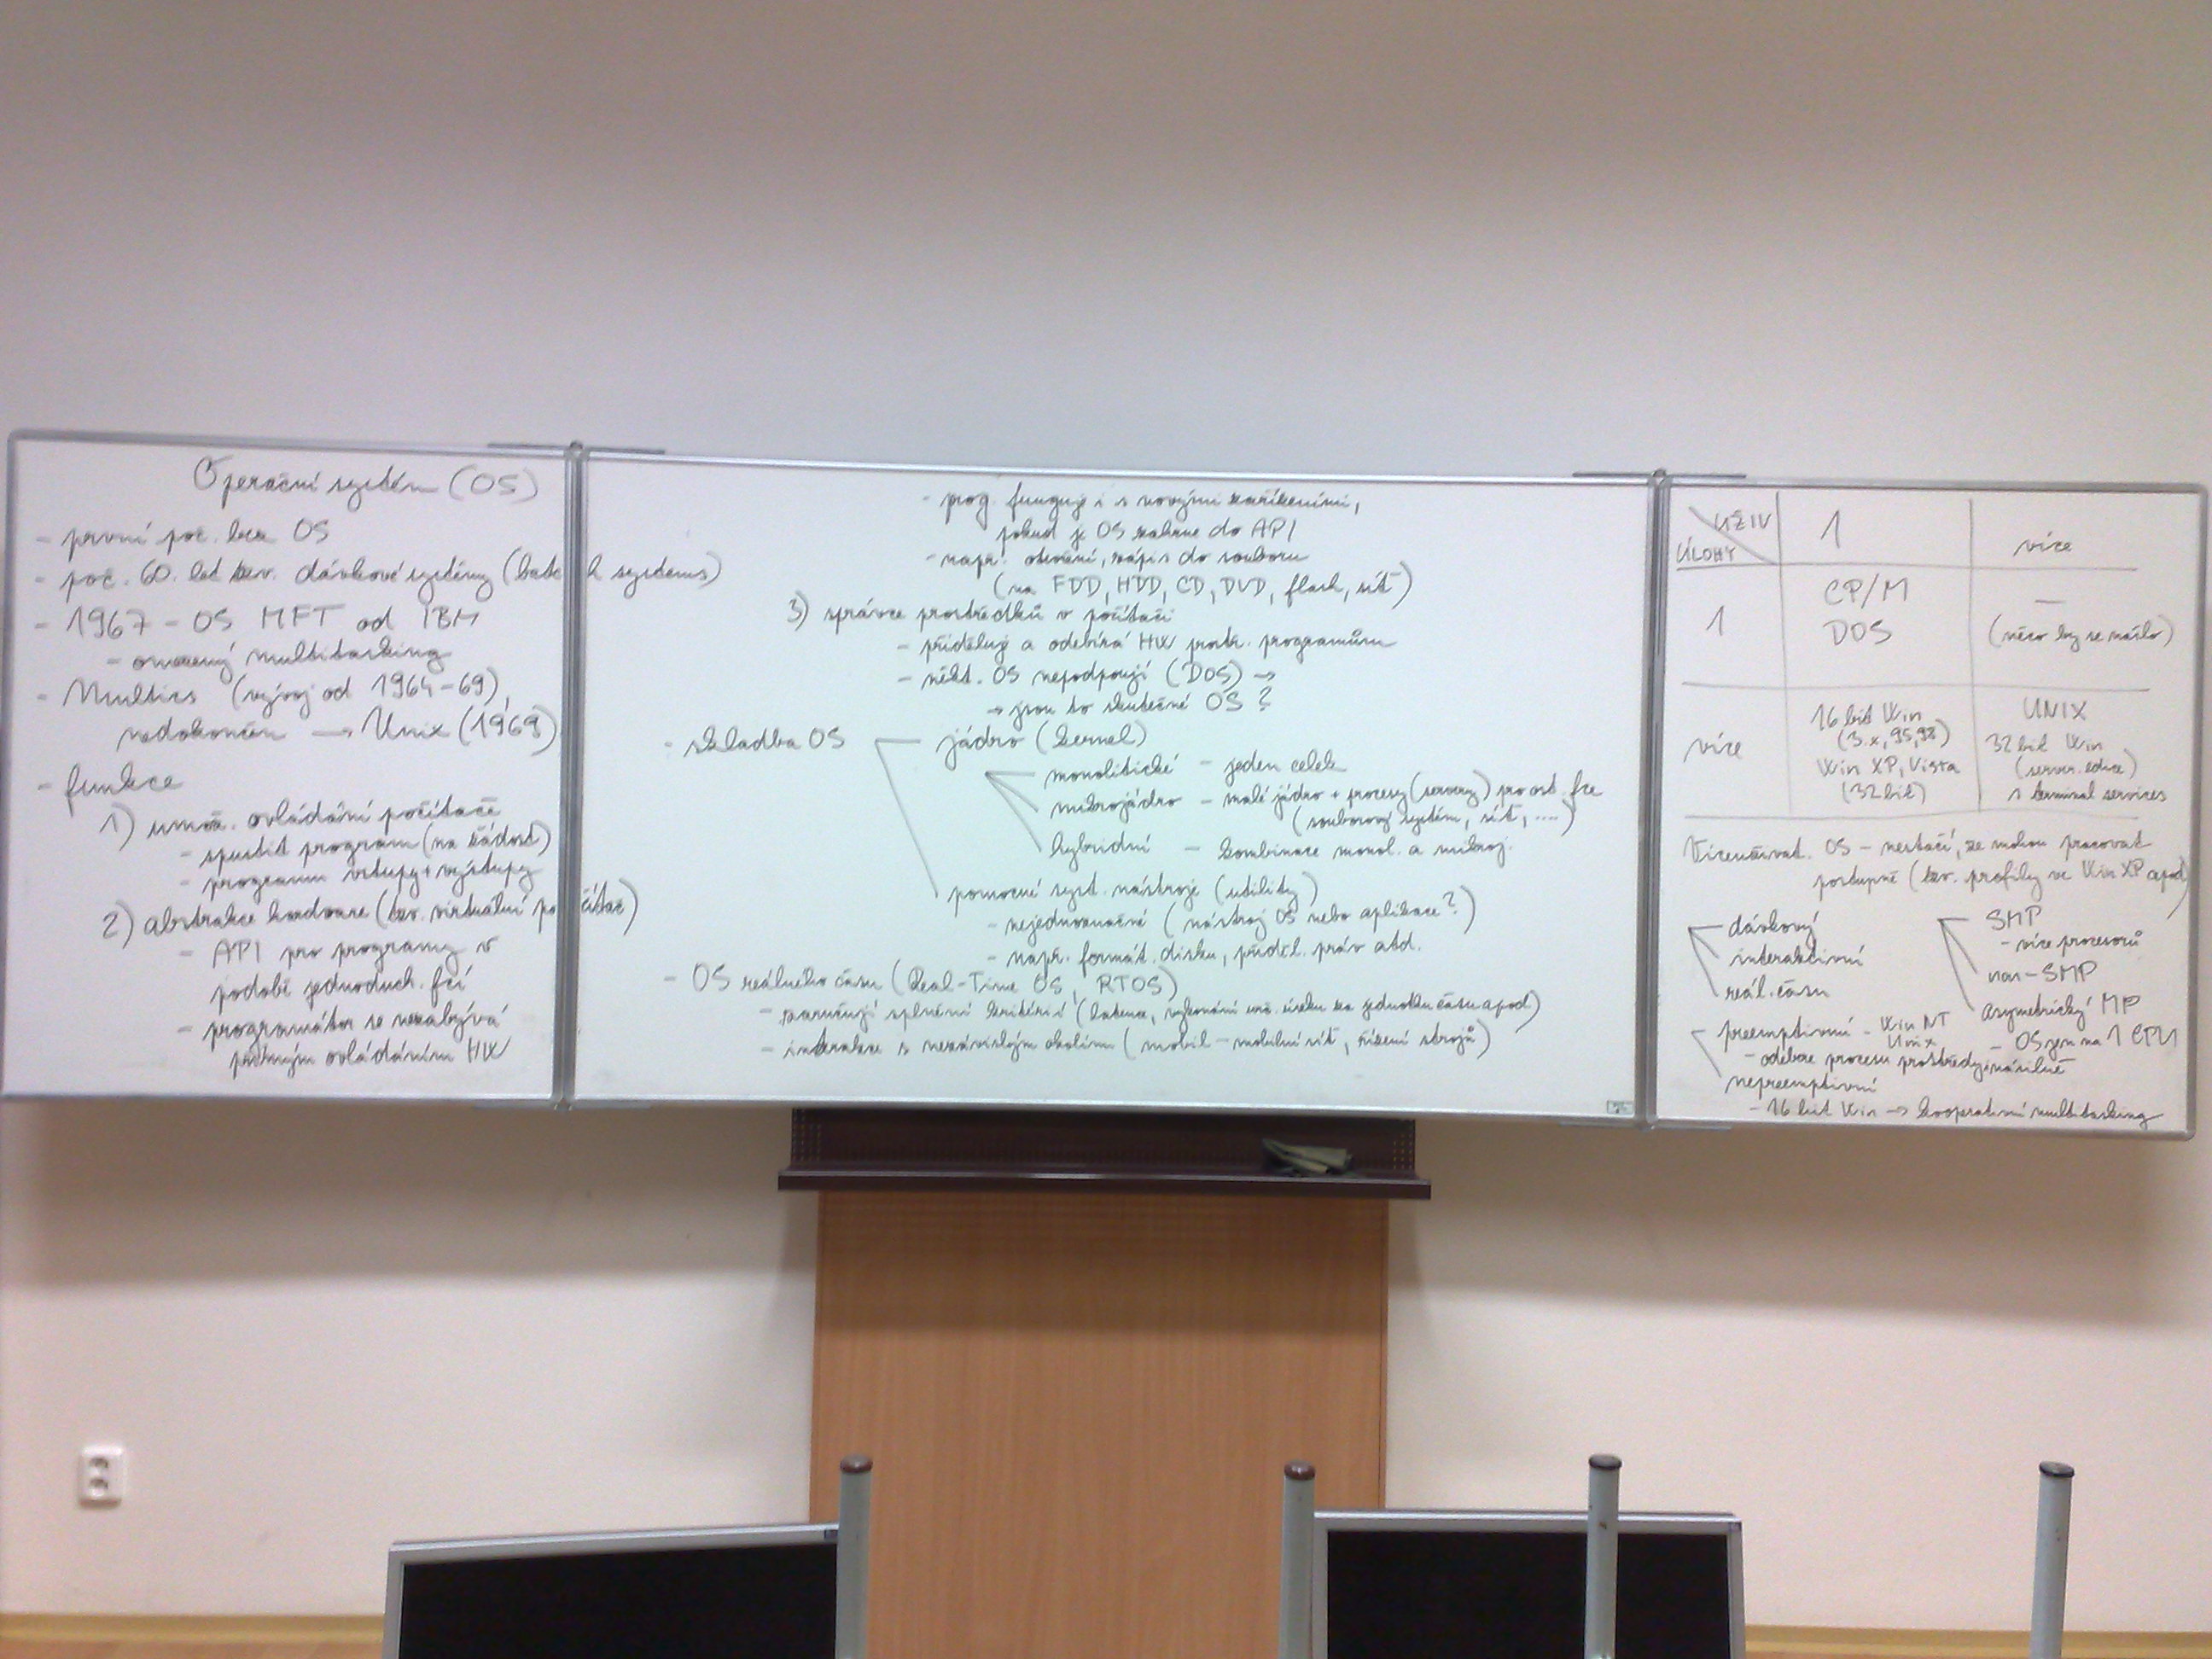 Operační systém (OS)
- první poč. bez OS
- poč. 60. let tzv. dávkové systémy (batch systems)
- 1967 - OS MFT od IBM
- omezený multitasking
- Multics (vývoj od 1964-69),
nedokončen → Unix (1969)
- funkce
1) umož. ovládání počítače
- spustit program (na žádost)
- programu vstupy + výstupy
2) abstrakce hardware (tzv. virtuální počítač)
- API pro programy v
podobě jednoduch. fcí
- programátor se nezabývá
přímým ovládáním HW
- prog. funguje i s novými zařízeními,
pokud je OS zahrne do API
- např. otevření, zápis do souboru
(na FDD, HDD, CD, DVD, flash, síť)
3) správce prostředků v počítači
- přiděluje a odebírá HW prostř. programům
- někt. OS nepodporují (DOS) →
→ jsou to skutečné OS?
- skladba OS
jádro (kernel)
monolitické - jeden celek
mikrojádro - malé jádro + procesy (servery) pro ost. fce
(souborový systém, síť, ....)
hybridní - kombinace monol. a mikroj.
pomocné syst. nástroje (utility)
- nejednoznačné (nástroj OS nebo aplikace?)
- např. formát. disku, příděl. práv atd.
- OS reálného času (Real-Time OS, RTOS)
- zaručují splnění kritérií (latence, vykonání urč. úseku za jednotku času apod)
- interakce s nezávislým okolím (mobil - mobilní síť, řízení strojů)
UŽIV
ÚLOHY
1
více
1
CP/M
DOS
—
(něco by se našlo)
více
16 bit Win
(3.x, 95, 98)
Win XP, Vista
(32 bit)
UNIX
32 bit Win
(server. edice)
s terminal services
Víceuživat. OS - nestačí, že mohou pracovat
postupně (tzv. profily ve Win XP apod)
dávkový
interaktivní
reál. času
SMP
- více procesorů
non-SMP
asymetrický MP
- OS jen na 1 CPU
preemptivní - Win NT
Unix
- odebere procesu prostředky násilně
nepreemptivní
- 16 bit Win → kooperativní multitasking